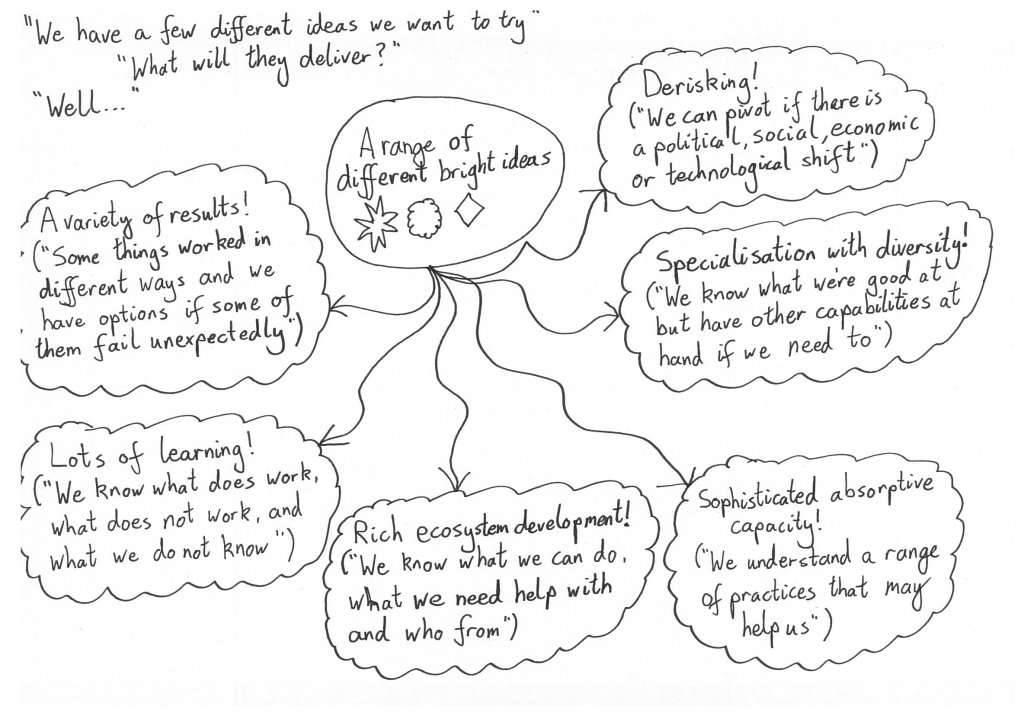 "We have a few different ideas we want to try"
"What will they deliver?"
"Well..."
A range of
different bright ideas
Derisking!
("We can pivot if there is
a political, social, economic
or technological shift")
A variety of results!
("Some things worked in
different ways and we
have options if some of
them fail unexpectedly")
Specialisation with diversity!
("We know what we're good at
but have other capabilities at
hand if we need to")
Lots of learning!
("We know what does work,
what does not work, and
what we do not know")
Rich ecosystem development!
("We know what we can do,
what we need help with
and who from")
Sophisticated absorptive
capacity!
("We understand a range
of practices that may
help us")